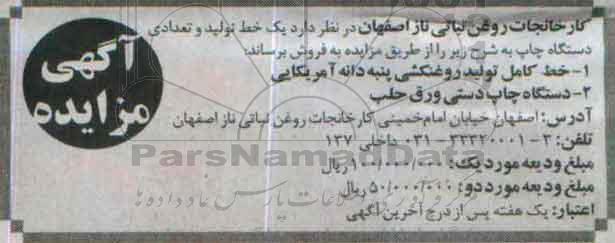 آگهی
مزایده
کارخانجات روغن نباتی ناز اصفهان در نظر دارد یک خط تولید و تعدادی
دستگاه چاپ به شرح زیر را از طریق مزایده به فروش برساند:
۱- خط کامل تولید روغنکشی پنبه دانه آمریکایی
۲- دستگاه چاپ دستی ورق حلب
آدرس: اصفهان خیابان امام خمینی کارخانجات روغن نباتی ناز اصفهان
تلفن: ۳ - ۳۳۳۲۰۰۰۱ - ۰۳۱ داخلی ۱۳۷
مبلغ ودیعه مورد یک: ۱۰۰/۰۰۰/۰۰۰ ریال
مبلغ ودیعه مورد دو: ۵۰/۰۰۰/۰۰۰ ریال
اعتبار: یک هفته پس از درج آخرین آگهی
ParsNamadData